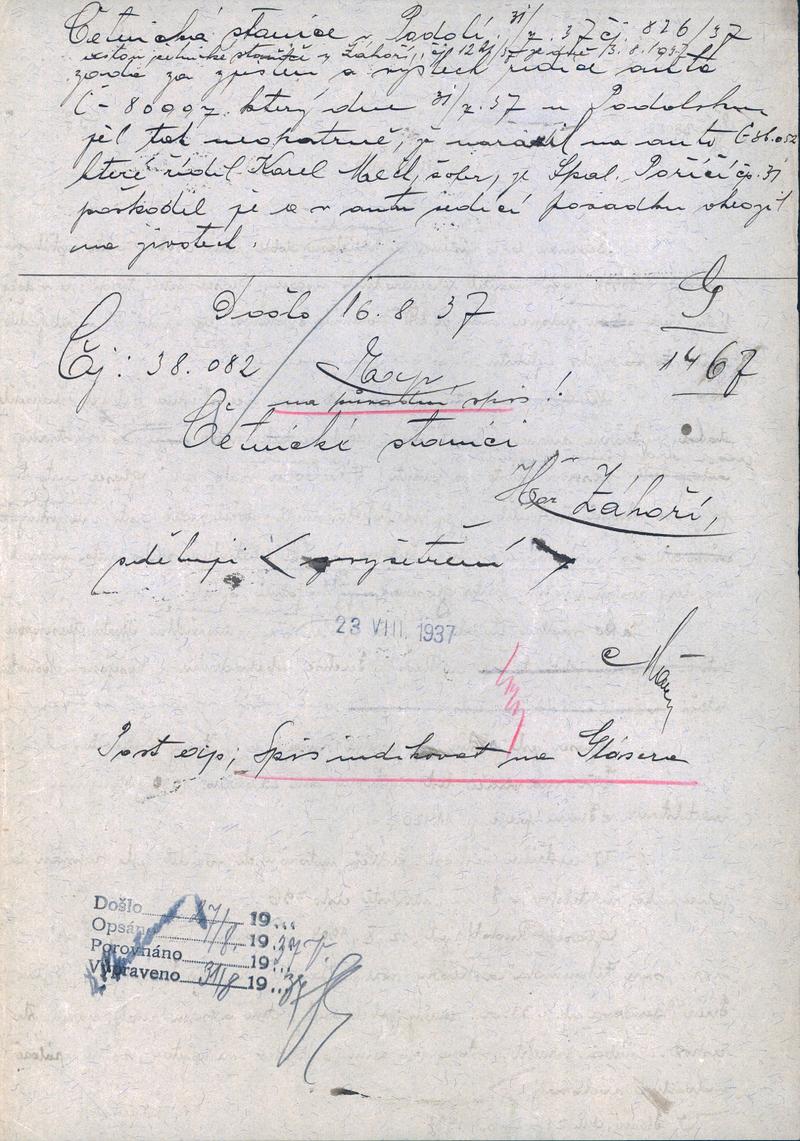 Četnická stanice v Podolí, 31/7. 37 čj. 826/37
četnické stanice v Záhoří, čj. 1221/37 ze dne 13.8.1937
žádá za zjištění a výslech řidiče auta
Č-80997, který dne 31/7.37 u Podolska
jel tak neopatrně, že narazil na auto Č86.052
které řídil Karel šofér, z Spál. Poříčí čp. 31
poškodil je a v autu sedící posádku ohrozil
na životech.
Došlo 16. 8 37
G
1467
Čj: 38.082
na původní spis!
Četnické stanici
Hor Záhoří,
sděluji vyšetření
23 VIII. 1937
Post exp; Spis indikovat na Glásera
Došlo 27/8 19...
Opsáno /8. 19.37
Porovnáno 19..
Vypraveno 31/8 19.37